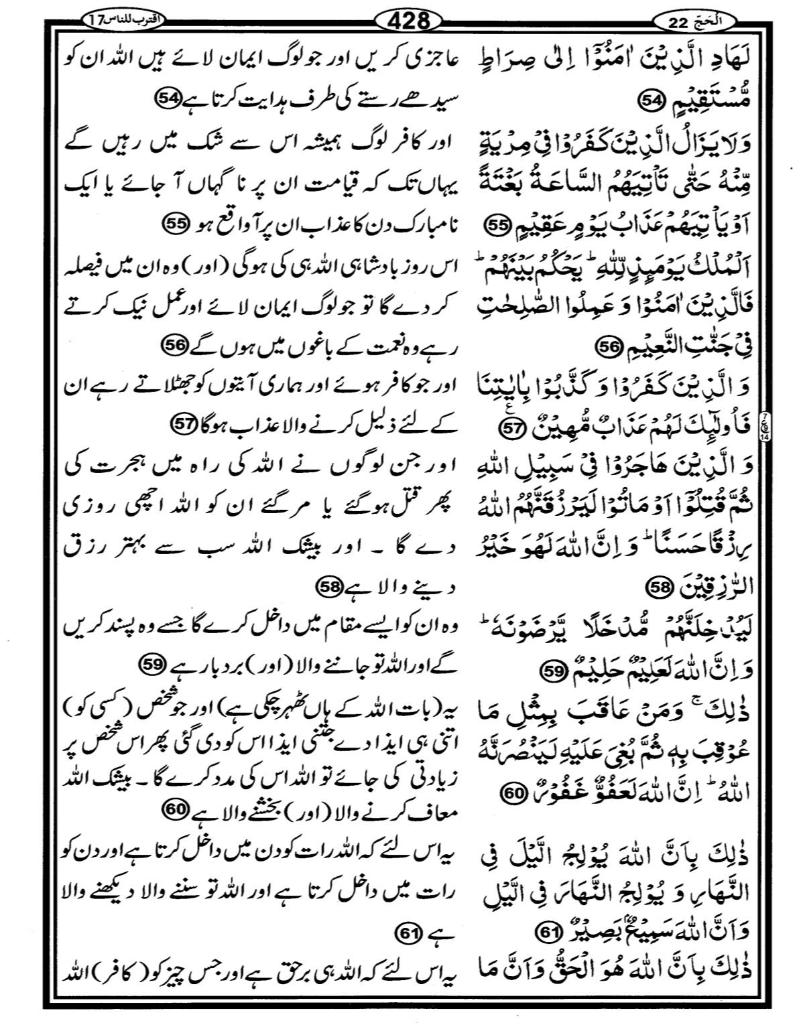 الۡحَجّ 22
428
اقترب للناس 17
لَهَادِ الَّذِيۡنَ اٰمَنُوۡۤا اِلٰى صِرَاطٍ
مُّسۡتَقِيۡمٍ 54
وَلَا يَزَالُ الَّذِيۡنَ كَفَرُوۡا فِىۡ مِرۡيَةٍ
مِّنۡهُ حَتّٰى تَاۡتِيَهُمُ السَّاعَةُ بَغۡتَةً
اَوۡ يَاۡتِيَهُمۡ عَذَابُ يَوۡمٍ عَقِيۡمٍ 55
اَلۡمُلۡكُ يَوۡمَئِذٍ لِّلّٰهِ ؕ يَحۡكُمُ بَيۡنَهُمۡ ؕ
فَالَّذِيۡنَ اٰمَنُوۡا وَ عَمِلُوا الصّٰلِحٰتِ
فِىۡ جَنّٰتِ النَّعِيۡمِ 56
وَ الَّذِيۡنَ كَفَرُوۡا وَ كَذَّبُوۡا بِاٰيٰتِنَا
فَاُولٰٓئِكَ لَهُمۡ عَذَابٌ مُّهِيۡنٌ 57 ع
وَ الَّذِيۡنَ هَاجَرُوۡا فِىۡ سَبِيۡلِ اللّٰهِ
ثُمَّ قُتِلُوۡۤا اَوۡ مَاتُوۡا لَيَرۡزُقَنَّهُمُ اللّٰهُ
رِزۡقًا حَسَنًا ؕ وَ اِنَّ اللّٰهَ لَهُوَ خَيۡرُ
الرّٰزِقِيۡنَ 58
لَيُدۡخِلَنَّهُمۡ مُّدۡخَلًا يَّرۡضَوۡنَهٗ ؕ
وَ اِنَّ اللّٰهَ لَعَلِيۡمٌ حَلِيۡمٌ 59
ذٰلِكَ ۚ وَمَنۡ عَاقَبَ بِمِثۡلِ مَا
عُوۡقِبَ بِهٖ ثُمَّ بُغِىَ عَلَيۡهِ لَيَنۡصُرَنَّهُ
اللّٰهُ ؕ اِنَّ اللّٰهَ لَعَفُوٌّ غَفُوۡرٌ 60
ذٰلِكَ بِاَنَّ اللّٰهَ يُوۡلِجُ الَّيۡلَ فِى
النَّهَارِ وَ يُوۡلِجُ النَّهَارَ فِى الَّيۡلِ
وَ اَنَّ اللّٰهَ سَمِيۡعٌۢ بَصِيۡرٌ 61
ذٰلِكَ بِاَنَّ اللّٰهَ هُوَ الۡحَقُّ وَ اَنَّ مَا
عاجزی کریں اور جو لوگ ایمان لائے ہیں اللہ ان کو
سیدھے رستے کی طرف ہدایت کرتا ہے 54
اور کافر لوگ ہمیشہ اس سے شک میں رہیں گے
یہاں تک کہ قیامت ان پر نا گہاں آ جائے یا ایک
نامبارک دن کا عذاب ان پر آ واقع ہو 55
اس روز بادشاہی اللہ ہی کی ہوگی (اور) وہ ان میں فیصلہ
کر دے گا تو جو لوگ ایمان لائے اور عمل نیک کرتے
رہے وہ نعمت کے باغوں میں ہوں گے 56
اور جو کافر ہوئے اور ہماری آیتوں کو جھٹلاتے رہے ان
کے لئے ذلیل کرنے والا عذاب ہوگا 57
اور جن لوگوں نے اللہ کی راہ میں ہجرت کی
پھر قتل ہو گئے یا مر گئے ان کو اللہ اچھی روزی
دے گا ۔ اور بیشک اللہ سب سے بہتر رزق
دینے والا ہے 58
وہ ان کو ایسے مقام میں داخل کرے گا جسے وہ پسند کریں
گے اور اللہ تو جاننے والا (اور) بردبار ہے 59
یہ (بات اللہ کے ہاں ٹھہر چکی ہے) اور جو شخص (کسی کو)
اتنی ہی ایذا دے جتنی ایذا اس کو دی گئی پھر اس شخص پر
زیادتی کی جائے تو اللہ اس کی مدد کرے گا ۔ بیشک اللہ
معاف کرنے والا (اور) بخشنے والا ہے 60
یہ اس لئے کہ اللہ رات کو دن میں داخل کرتا ہے اور دن کو
رات میں داخل کرتا ہے اور اللہ تو سننے والا دیکھنے والا
ہے 61
یہ اس لئے کہ اللہ ہی برحق ہے اور جس چیز کو (کافر) اللہ